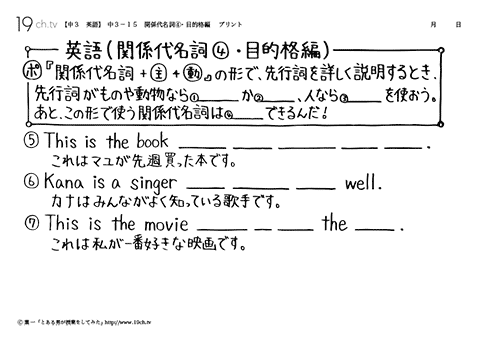 19ch.tv 【中3 英語】 中3-15 関係代名詞④・目的格編 プリント 月 日
英語(関係代名詞④・目的格編)
ポ『関係代名詞+主+動』の形で、先行詞を詳しく説明するとき、
先行詞がものや動物なら①____か②____、人なら③____を使おう。
あと、この形で使う関係代名詞は④____できるんだ!
⑤ This is the book ____ ____ ____ ____ ____.
これはマユが先週買った本です。
⑥ Kana is a singer ____ ____ ____ well.
カナはみんながよく知っている歌手です。
⑦ This is the movie ____ __ ____ the ____.
これは私が一番好きな映画です。
© 葉一「とある男が授業をしてみた」http://www.19ch.tv